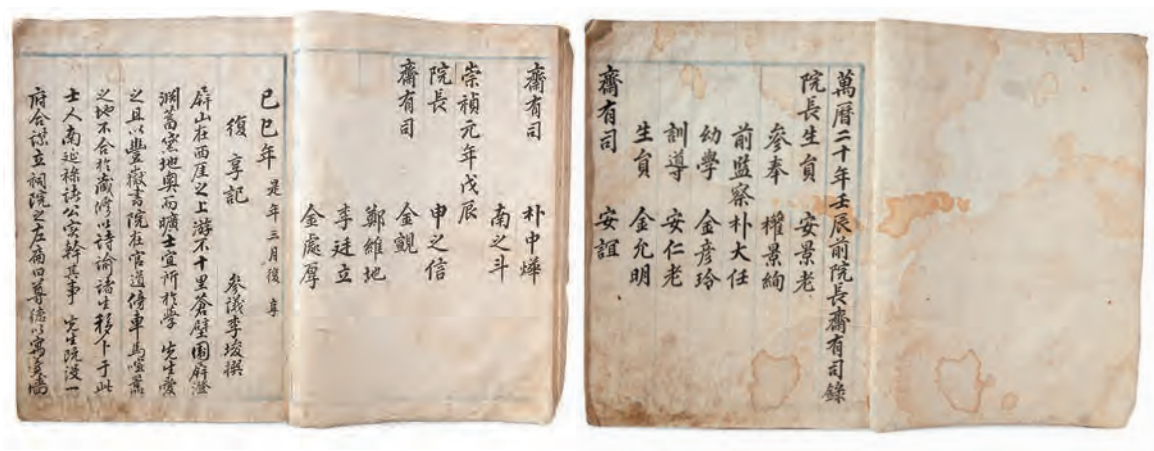 萬曆二十年壬辰前院長齋有司錄
院長生員 安景老
參奉 權景絢
前監察 朴大任
幼學 金彦玲
訓導 安仁老
生員 金允明
齋有司 安誼
齋有司 朴中燁
南之斗
崇禎元年戊辰
院長 申之信
齋有司 金鯢
鄭維地
李廷立
金處厚
己巳年 是年三月復享
復享記 參議李埈撰
屛山在西厓之上游不十里蒼壁圍屛澄
淵蓄黛地奧而曠士宜所於學 先生愛
之且以豐嶽書院在官道傍車馬喧
之地不合於藏修以詩諭諸生移卜于此
士人南延祿諸公實幹其事 先生旣沒一
府合謀立祠院之左扁曰尊德以寓羹墻